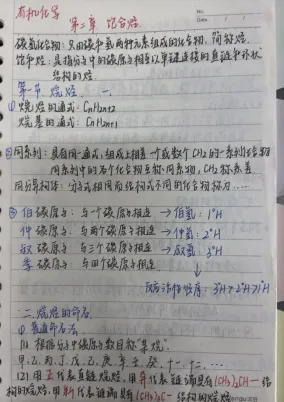 有机化学
No.
Date
第二章 饱合烃
碳氢化合物：只由碳和氢两种元素组成的化合物，简称烃.
饱和烃：是指分子中的碳原子相互以单键连接的直链和环状
结构的烃
第一节 烷烃 一、
① 烷烃的通式：CnH2n+2
烷基的通式：CnH2n+1
② 同系列：具有同一通式，组成上相差一个或数个CH2的一系列化合物
同系列中的各个化合物称互为同系物，CH2称系差.
同分异构体：分子式相同而结构式不同的化合物称为……
③ 伯碳原子：与一个碳原子相连 → 伯氢：1°H
仲碳原子：与两个碳原子相连 → 仲氢：2°H
叔碳原子：与三个碳原子相连 → 叔氢：3°H
季碳原子：与四个碳原子相连.
反应活性：3°H>2°H>1°H
二. 烷烃的命名
① 普通命名法
(1). 根据分子中碳原子数目称“某烷”
甲、乙、丙、丁、戊、己、庚、辛、壬、癸、十一、十二、……
(2). 用正代表直链烷烃，用异代表链端具有(CH3)2CH—结
构的烷烃，用新代表链端具有(CH3)3C—结构的烷烃